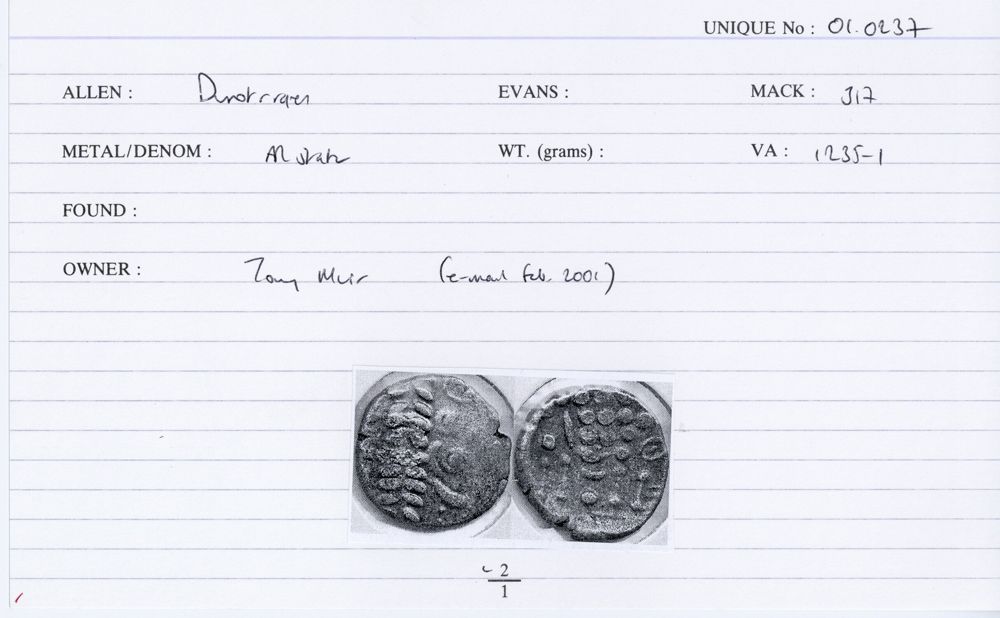 UNIQUE No : 01.0237
ALLEN : Durotrigan EVANS : MACK : 317
METAL/DENOM : AR stater WT. (grams) : VA : 1235-1
FOUND :
OWNER : Tony Muir (e-mail Feb. 2001)
2
1